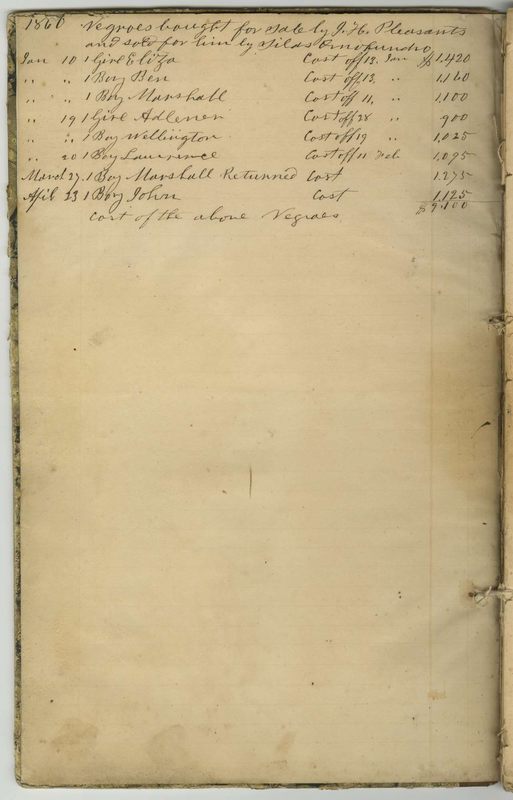 1860 Negroes bought for Sale by J. H. Pleasants
and sold for him by Silas Omohundro
Jan 10 1 Girl Eliza Cost off 13, Jan $1.420
" " 1 Boy Ben Cost off 13, " 1,160
" " 1 Boy Marshall Cost off 11, " 1,100
" 19 1 Girl Adlener Cost off 28 " 900
" " 1 Boy Wellington Cost off 19 " 1,025
" 20 1 Boy Lawrence Cost off 11 Feb 1,095
March 27. 1 Boy Marshall Returnned Cost 1.275
April 23 1 Boy John Cost 1,125
Cost of the above Negroes $9.100